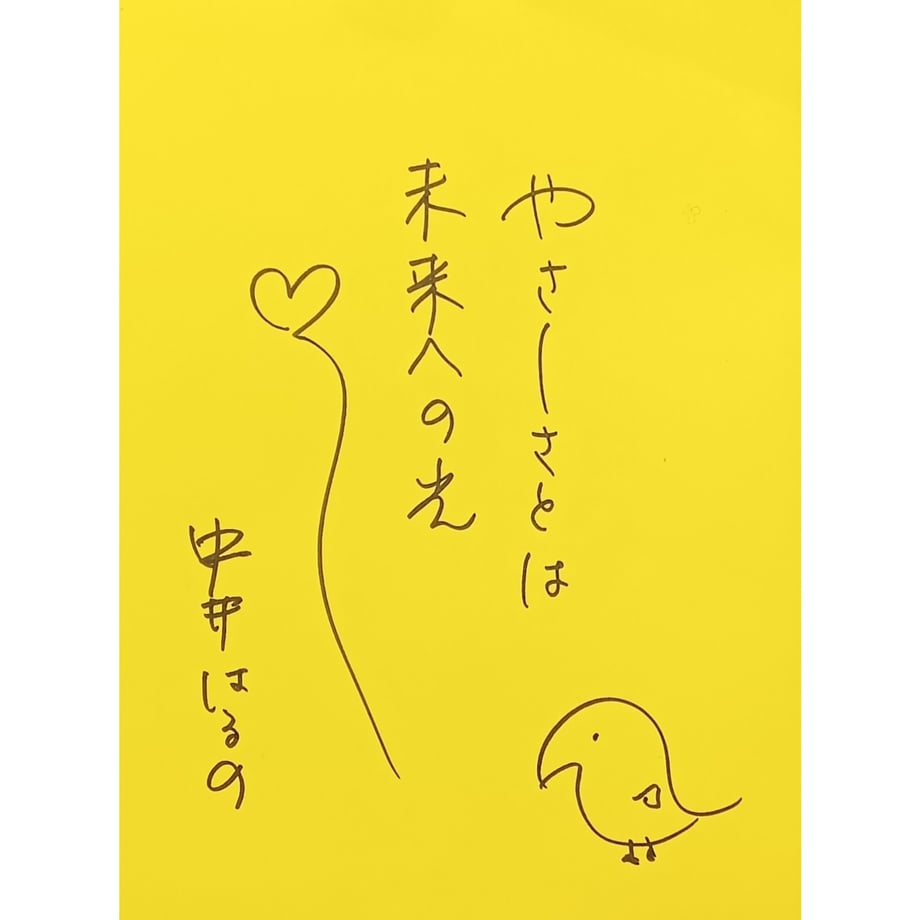 やさしさとは
未来への光
中井はるの